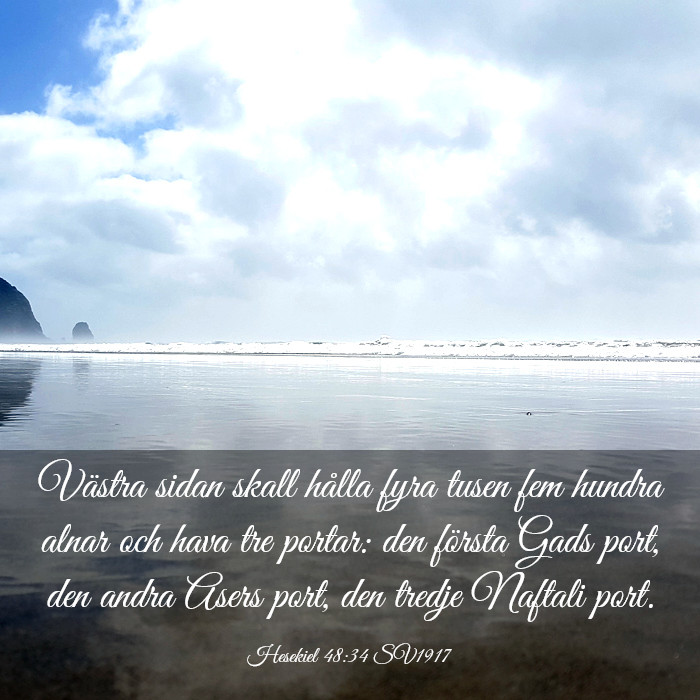 Västra sidan skall hålla fyra tusen fem hundra
alnar och hava tre portar: den första Gads port,
den andra Asers port, den tredje Naftali port.
Hesekiel 48:34 SV1917